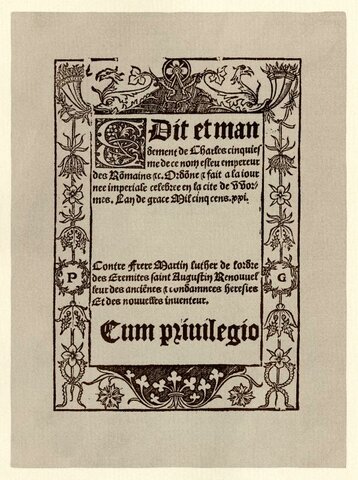 EDit et man
dement de Charles cinquies
me de ce nom esleu empereur
des Rōmains ⁊c. Ordōne ⁊ fait a la iour
nee imperiale celebree en la cite de vvor-
mes. Lan de grace Mil cinq cens. xxi.
Contre Frere Martin luther de lordre
des Eremites saint Augustin Renouvel
leur des anciēnes ⁊ condamnees heresies
Et des nouvelles inventeur.
P G
Cum privilegio